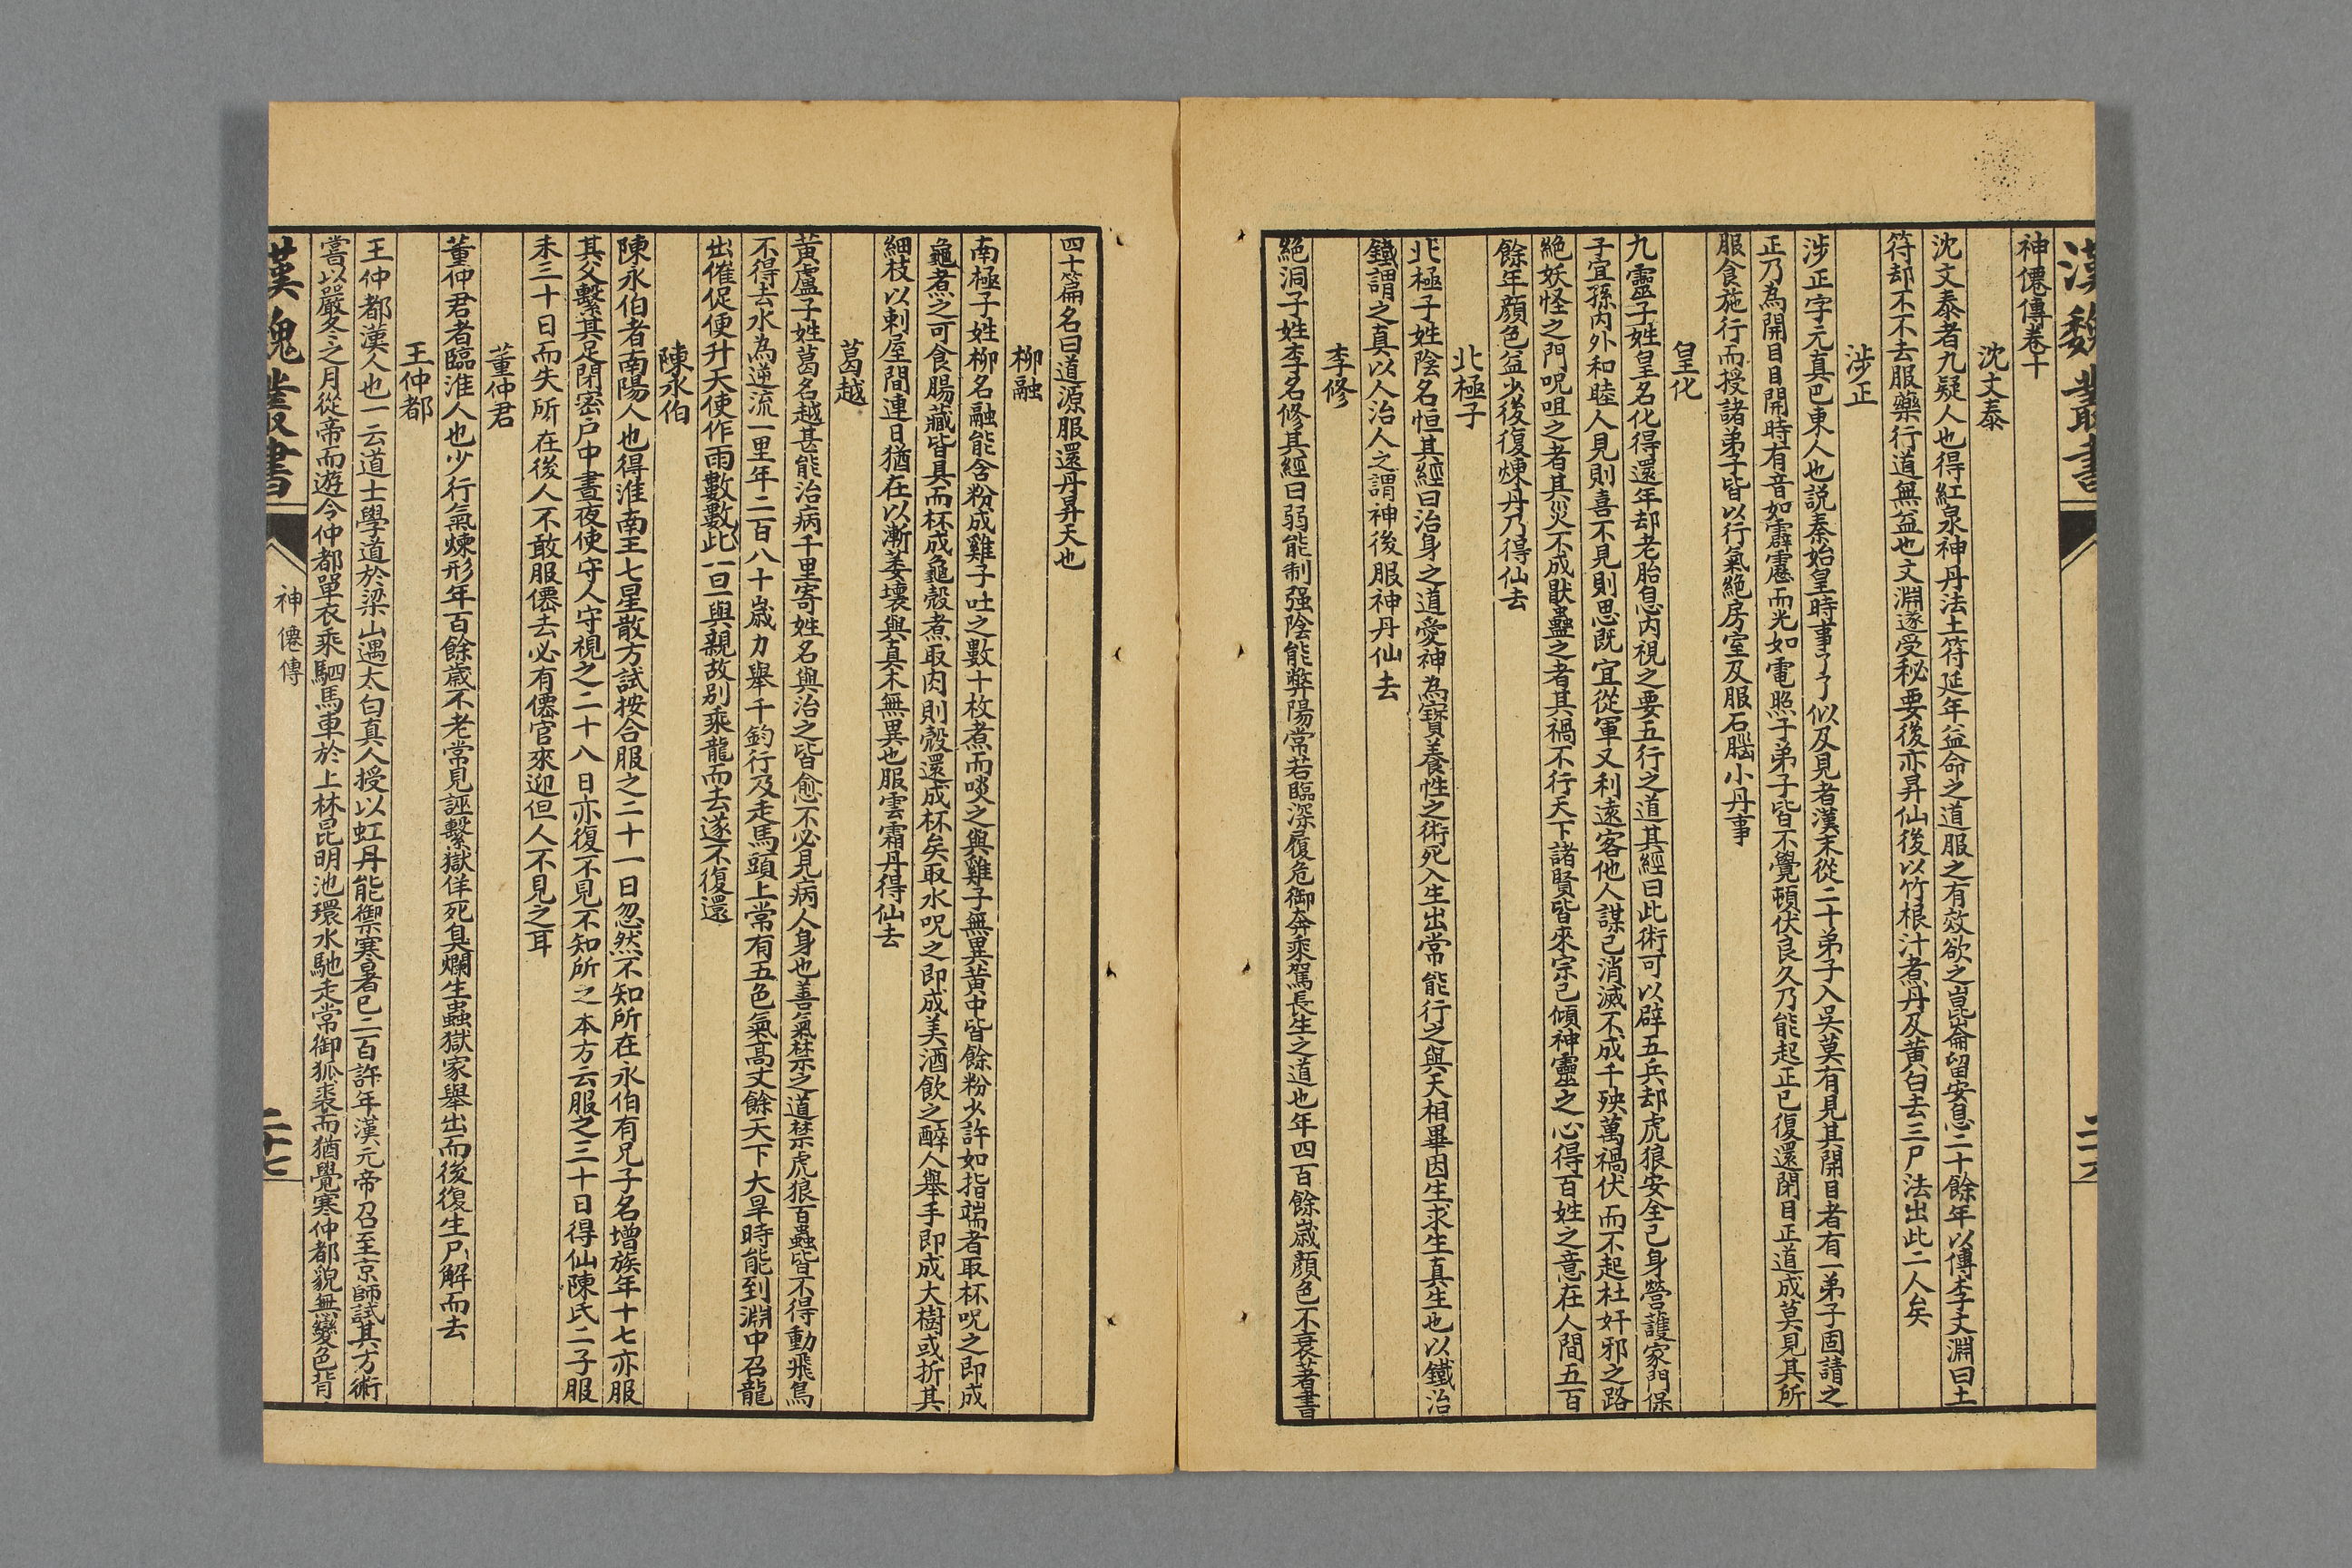 漢魏叢書
神僊傳卷十
沈文泰
沈文泰者九疑人也得紅泉神丹法土符延年益命之道服之有效欲之崑崙留安息二十餘年以傳李文淵曰土
符却不不去服藥行道無益也文淵遂受秘要後亦昇仙後以竹根汁煮丹及黃白去三尸法出此二人矣
涉正
涉正字元真巴東人也説秦始皇時事了了似及見者漢末從二十弟子入吳莫有見其開目者有一弟子固請之
正乃為開目目開時有音如霹靂而光如電照子弟子皆不覺頓伏良久乃能起正已復還閉目正道成莫見其所
服食施行而授諸弟子皆以行氣絕房室及服石腦小丹事
皇化
九靈子姓皇名化得還年却老胎息内視之要五行之道其經曰此術可以辟五兵却虎狼安全己身營護家門保
子宜孫内外和睦人見則喜不見則思既宜從軍又利遠客他人謀己消滅不成千殃萬禍伏而不起杜奸邪之路
絕妖怪之門呪咀之者其災不成猒蠱之者其禍不行天下諸賢皆來宗己傾神靈之心得百姓之意在人間五百
餘年顔色益少後復煉丹乃得仙去
北極子
北極子姓陰名恒其經曰治身之道愛神為寶養性之術死入生出常能行之與天相畢因生求生真生也以鐵治
鐵謂之真以人治人之謂神後服神丹仙去
李修
絕洞子姓李名修其經曰弱能制强陰能弊陽常若臨深履危御奔乘駕長生之道也年四百餘歲顔色不衰著書
四十篇名曰道源服還丹昇天也
柳融
南極子姓柳名融能含粉成雞子吐之數十枚煮而啖之與雞子無異黃中皆餘粉少許如指端者取杯呪之即成
龜煮之可食腸藏皆具而杯成龜殼煮取肉則殼還成杯矣取水呪之即成美酒飲之醉人舉手即成大樹或折其
細枝以刺屋間連日猶在以漸萎壞與真木無異也服雲霜丹得仙去
葛越
黃盧子姓葛名越甚能治病千里寄姓名與治之皆愈不必見病人身也善氣禁之道禁虎狼百蟲皆不得動飛鳥
不得去水為逆流一里年二百八十歲力舉千鈞行及走馬頭上常有五色氣高丈餘天下大旱時能到淵中召龍
出催促便升天使作雨數數此一旦與親故別乘龍而去遂不復還
陳永伯
陳永伯者南陽人也得淮南王七星散方試按合服之二十一日忽然不知所在永伯有兄子名增族年十七亦服
其父繫其足閉密户中晝夜使守人守視之二十八日亦復不見不知所之本方云服之三十日得仙陳氏二子服
未三十日而失所在後人不敢服僊去必有僊官來迎但人不見之耳
董仲君
董仲君者臨淮人也少行氣煉形年百餘歲不老常見誣繫獄佯死臭爛生蟲獄家舉出而後復生尸解而去
王仲都
王仲都漢人也一云道士學道於梁山遇太白真人授以虹丹能禦寒暑已二百許年漢元帝召至京師試其方術
嘗以嚴冬之月從帝而遊令仲都單衣乘駟馬車於上林昆明池環水馳走常御狐裘而猶覺寒仲都貌無變色背
漢魏叢書
神僊傳
二十七